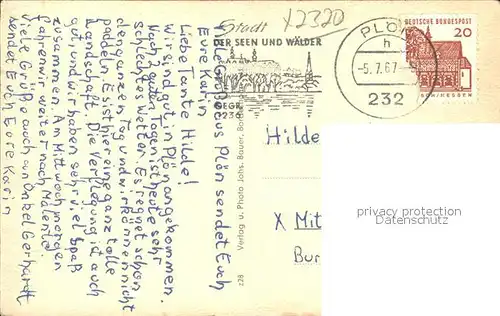 Viele Grüße aus Plön sendet Euch
Eure Karin
Liebe Tante Hilde!
Wir sind gut in Plön angekommen.
Nach 2 guten Tagen ist heute sehr
schlechtes Wetter. Es regnet schon
den ganzen Tag und wir können nicht
paddeln. Es ist hier eine ganz tolle
Landschaft. Die Verpflegung ist auch
gut, und wir haben sehr viel Spaß
zusammen. Am Mittwoch morgen
fahren wir weiter nach Malente.
Viele Grüße auch an Onkel Gerhardt
sendet Euch Eure Karin
z28 Verlag u. Photo Johs. Bauer,
X2320
Stadt
DER SEEN UND WÄLDER
GEGR.
1236
PLÖN
h
-5.7.67
232
DEUTSCHE BUNDESPOST
20
LORSCH/HESSEN
Hilde
X Mit
Bur
privacy protection
Datenschutz